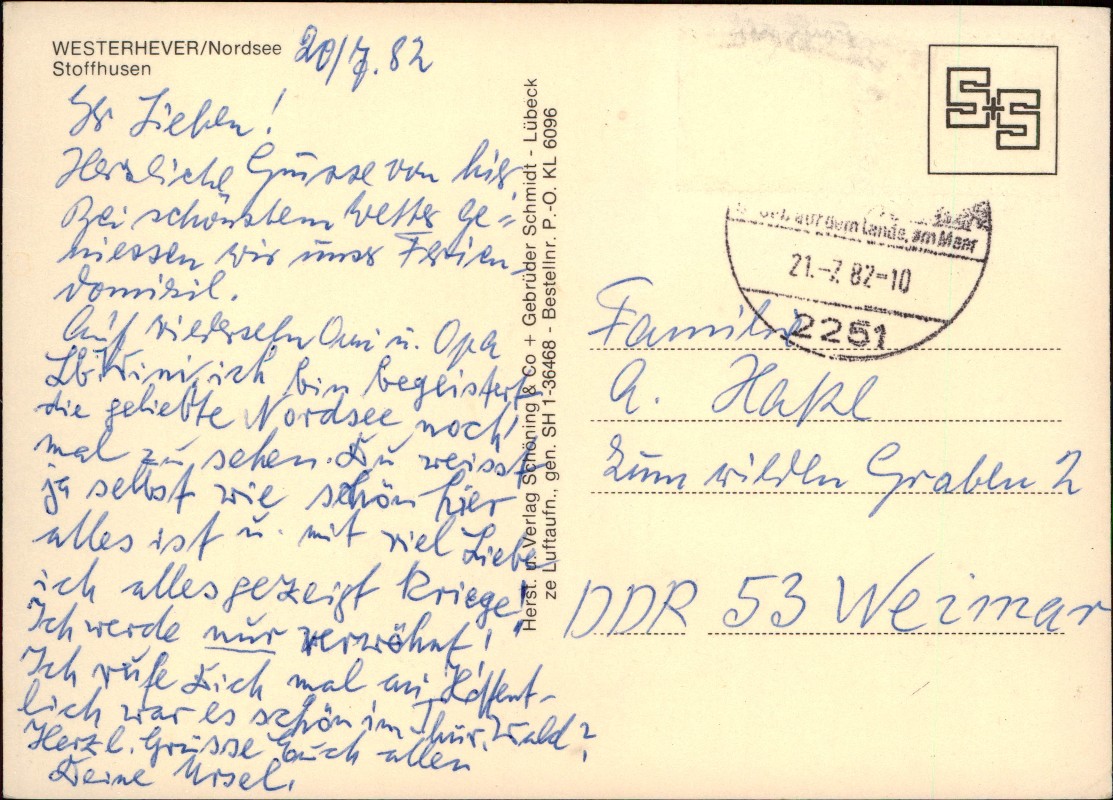 WESTERHEVER/Nordsee
Stoffhusen
20/7. 82
Ihr Lieben!
Herzliche Grüsse von hier.
Bei schönstem Wetter ge-
niessen wir unser Ferien-
domizil.
Auf Wiedersehn Omi u. Opa
ich bin begeistert
die geliebte Nordsee noch
mal zu sehen. Du weisst
ja selbst wie schön hier
alles ist u. mit viel Liebe
ich alles gezeigt kriege!
Ich werde nur verwöhnt!
Ich rufe Dich mal an! Hoffent-
lich war es schön im Thür. Wald?
Herzl. Grüsse Euch allen
Deine Ursel.
Herst. u. Verlag Schöning & Co + Gebrüder Schmidt - Lübeck
ze Luftaufn., gen. SH 1-36468 - Bestellnr. P.-O. KL 6096
S+S
auf dem Lande, am Meer
21.-7.82-10
2251
Familie
A. Hakl
Zum wilden Graben 2
DDR 53 Weimar